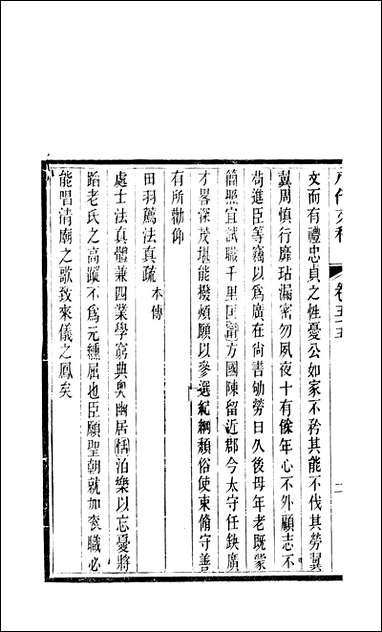 八代文粹 卷五五 二
文而有禮忠貞之性憂公如家不矜其能不伐其勞翼
翼周慎行靡玷漏密勿夙夜十有餘年心不外顧志不
苟進臣等竊以為廣在尙書劬勞日久後母年老既蒙
簡照宜試職千里匡寧方國陳留近郡今太守任缺廣
才畧深茂堪能撥煩願以參選紀綱頹俗使束脩守善
有所勸仰
田羽薦法真疏 本傳
處士法真體兼四業學窮典奧幽居恬泊樂以忘憂將
蹈老氏之高蹤不為元纁屈也臣願聖朝就加袞職必
能唱清廟之歌致來儀之鳳矣